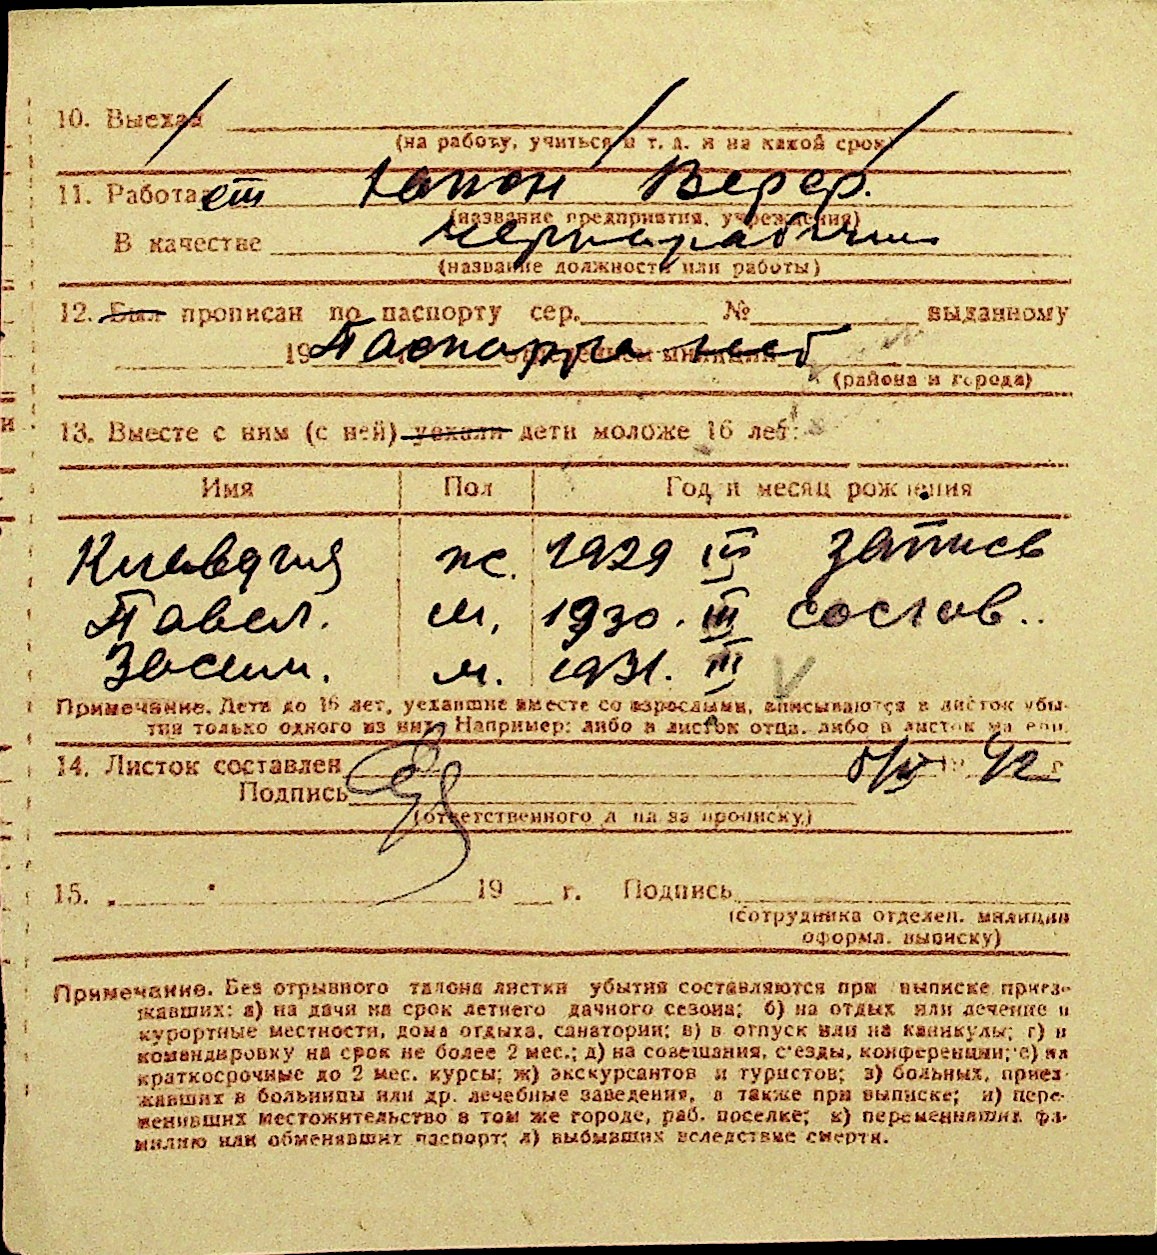 10. Выехал
(на работу, учиться и т. д. и на какой срок)
11. Работает
(название предприятия, учреждения)
В качестве чернорабочим
(название должности или работы)
12. Был прописан по паспорту сер. № выданному
19 Паспорта нет
(района и города)
13. Вместе с ним (с ней) уехали дети моложе 16 лет:
Имя Пол Год и месяц рождения
Клавдия ж. 1929 III запись
Павел. м. 1930. III состав..
Зосим. м. 1931. III
Примечание. Дети до 16 лет, уехавшие вместе со взрослыми, вписываются в листок убы-
тия только одного из них. Например: либо в листок отца, либо в листок матери.
14. Листок составлен 42 г.
Подпись
(ответственного лица за прописку)
15. 19 г. Подпись
(сотрудника отделен. милиции
оформл. выписку)
Примечание. Без отрывного талона листки убытия составляются при выписке приез-
жавших: а) на дачи на срок летнего дачного сезона; б) на отдых или лечение в
курортные местности, дома отдыха, санатории; в) в отпуск или на каникулы; г) в
командировку на срок не более 2 мес.; д) на совещания, с'езды, конференции; е) на
краткосрочные до 2 мес. курсы; ж) экскурсантов и туристов; з) больных, приез-
жавших в больницы или др. лечебные заведения, а также при выписке; и) пере-
менивших местожительство в том же городе, раб. поселке; к) переменивших фа-
милию или обменявших паспорт; л) выбывших вследствие смерти.